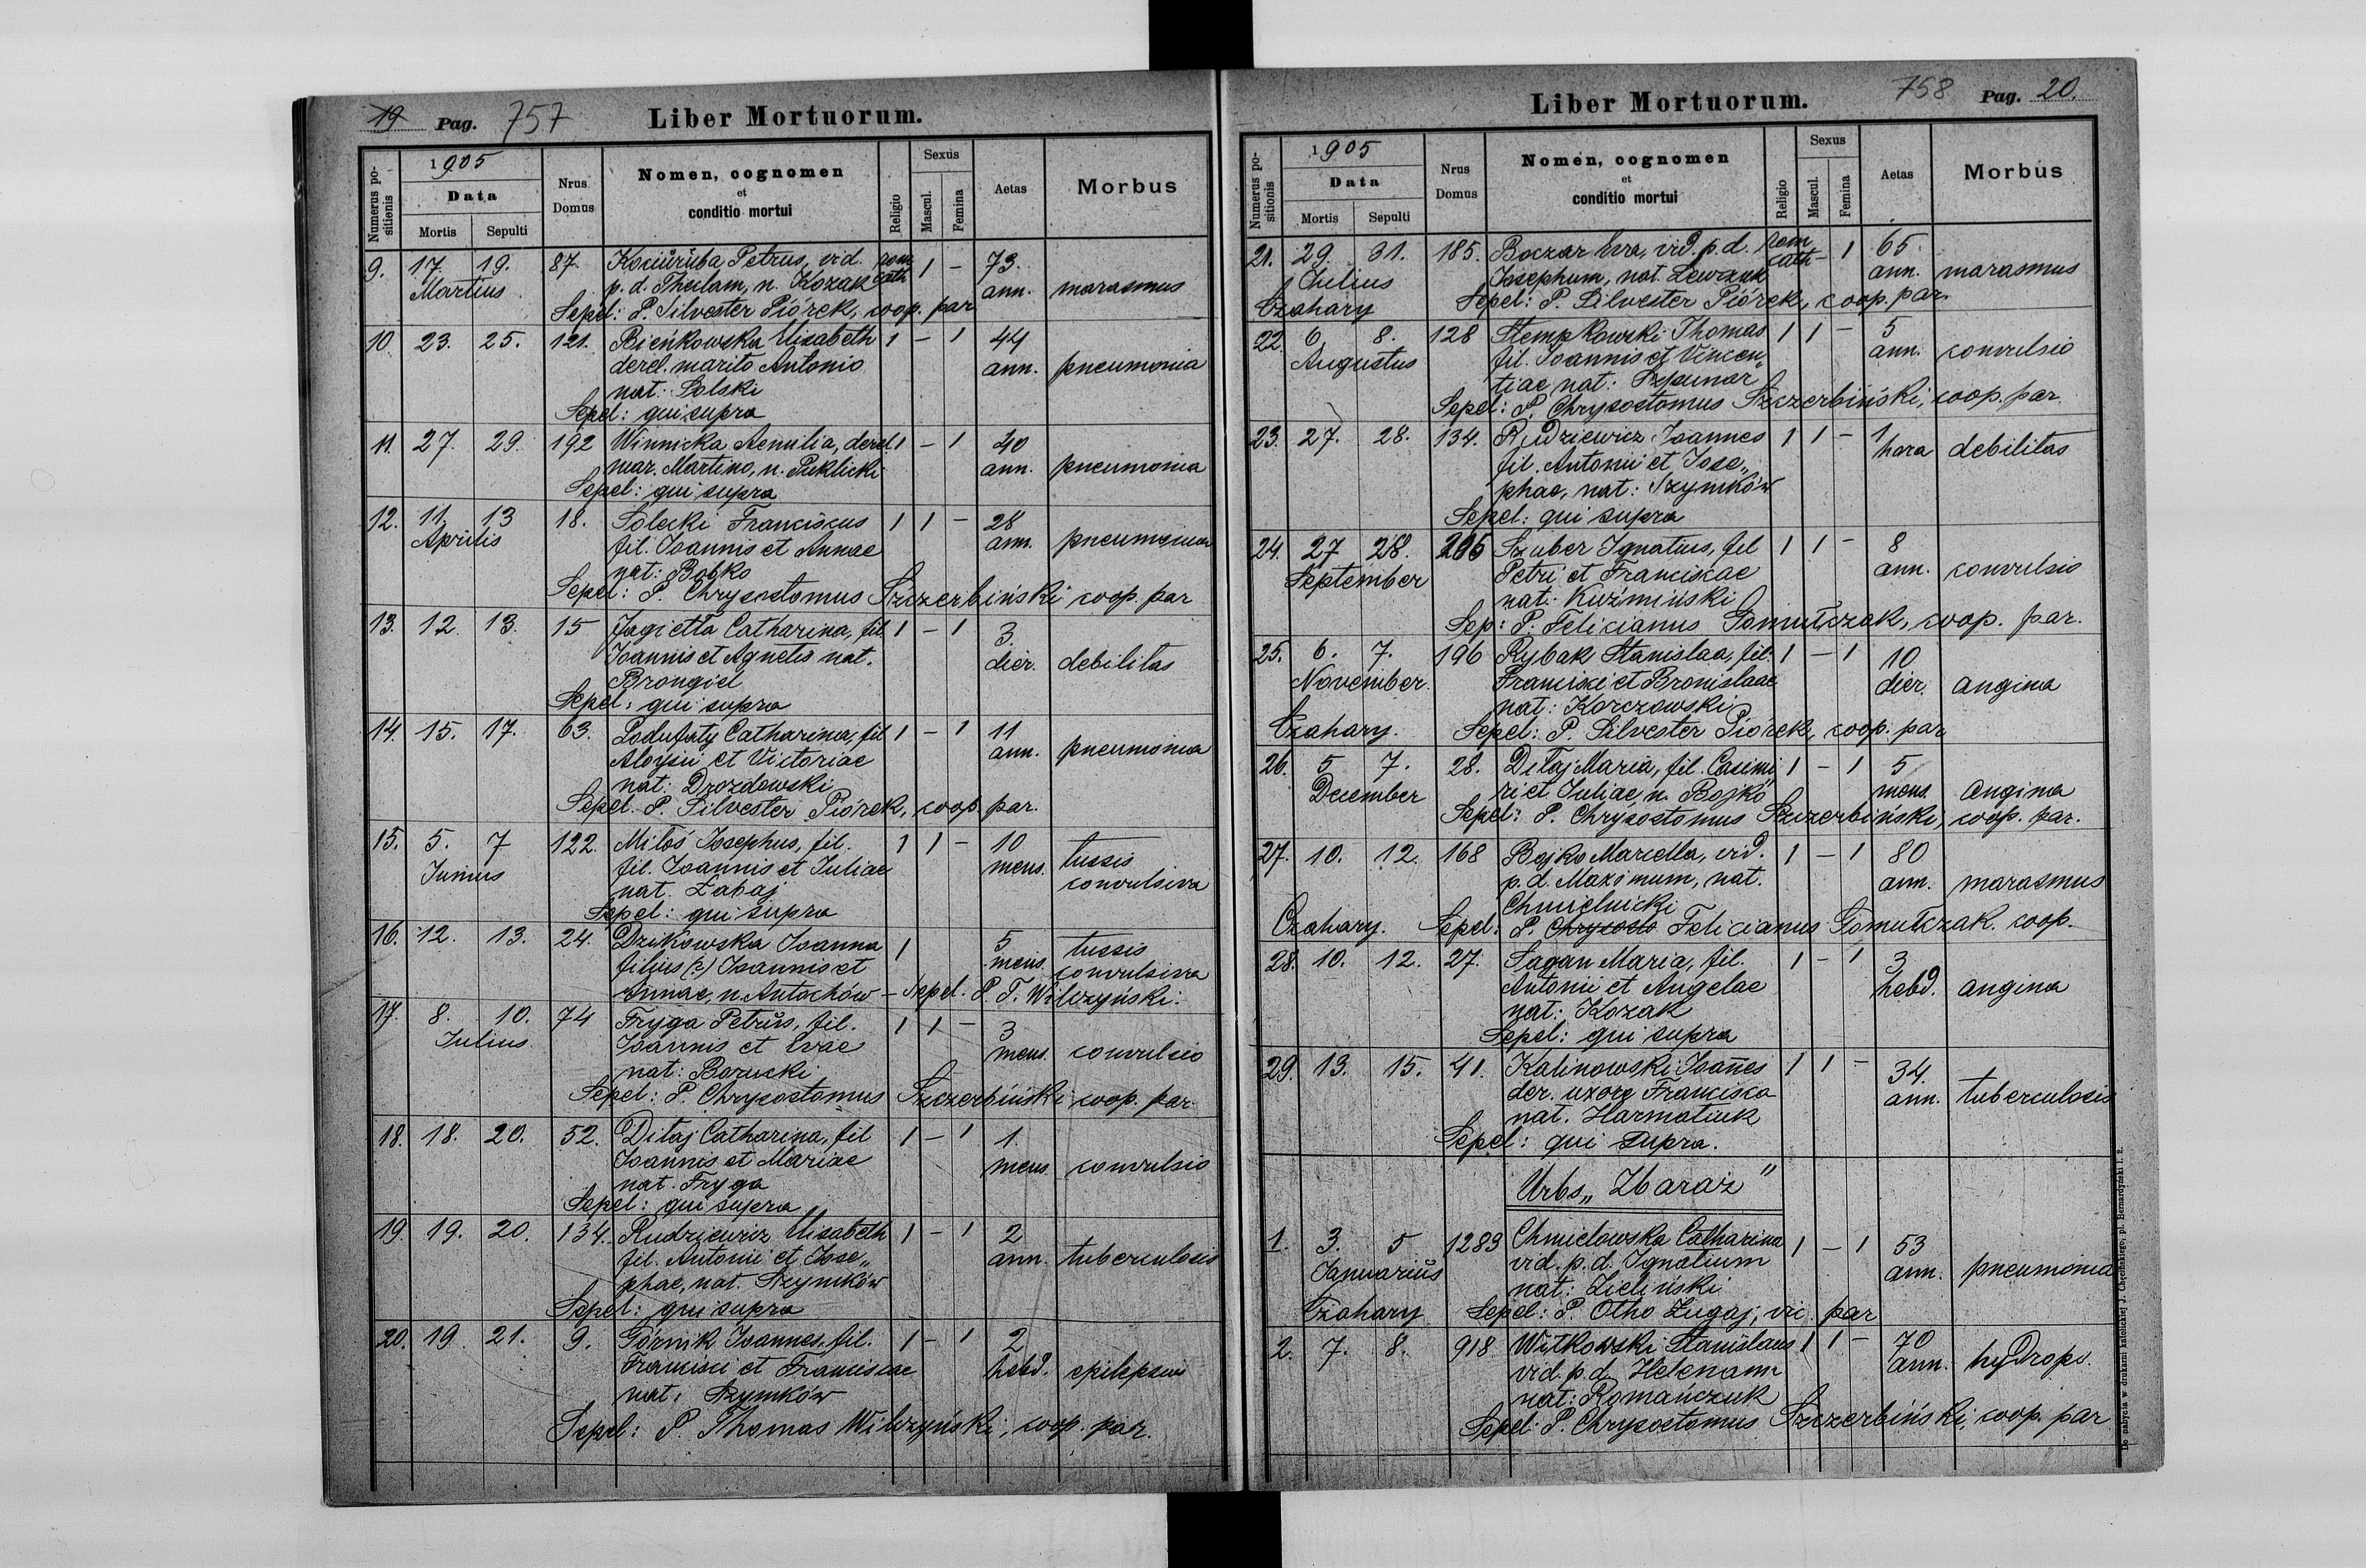 19 Pag. 757 Liber Mortuorum.
Numerus positienis
1905
Data
Mortis Sepulti
Nrus Domus
Nomen, cognomen
et
conditio mortui
Religio
Sexus
Mascul. Femina
Aetas
Morbus
9. 17. 19. 87 Kociuruba Petrus, vid. rom 1 - 73.
Martius p. d. Theclam, n. Kozak cath ann. marasmus
Sepel: P. Silvester Piórek, coop. par
10. 23. 25. 121. Bieńkowska Elisabeth 1 - 1 44
derel. marito Antonio ann. pneumonia
nat. Solski
Sepel: qui supra
11. 27. 29. 192 Winnicka Aemilia, derel. 1 - 1 40
mar. Martino, n. Puklicki ann. pneumonia
Sepel: qui supra
12. 11. 13 18. Solecki Franciscus 1 1 - 28
Aprilis fil. Joannis et Annae ann. pneumonia
nat: Bobko
Sepel: P. Chrysostomus Szczerbiński coop. par
13. 12. 13. 15 Jagiełła Catharina, fil 1 - 1 3
Joannis et Agnetis nat. dier. debilitas
Brongiel
Sepel: qui supra
14. 15. 17. 63. Catharina, fil 1 - 1 11
Aloysii et Victoriae ann. pneumonia
nat: Drozdowski
Sepel. P. Silvester Piórek, coop. par.
15. 5. 7 122. Miłoś Josephus, fil. 1 1 - 10 tussis
Junius fil. Joannis et Juliae mens. convulsiva
nat. Zabaj
Sepel: qui supra
16. 12. 13. 24. Dzikowska Joanna 1 5 tussis
filius (?) Joannis et mens. convulsiva
Annae, n. Antochów - Sepel. P. T. Wilczyński.
17. 8. 10. 74 Fryga Petrus, fil. 1 1 - 3
Julius. Joannis et Evae mens. convulsio
nat: Borucki
Sepel: P. Chrysostomus Szczerbiński coop. par.
18. 18. 20. 52. Ditaj Catharina, fil 1 - 1 1.
Joannis et Mariae mens. convulsio
nat. Fryga
Sepel: qui supra
19. 19. 20. 134. Rudziewicz Elisabeth 1 - 1 2
fil. Antonii et Jose„ ann. tuberculosis
phae, nat. Szymków
Sepel: qui supra
20. 19 21. 9. Górnik Joannes, fil. 1 - 1 2
Francisci et Franciscae hebd. epilepsia
nat: Szymków
Sepel: P. Thomas Wilczyński, coop. par.
Liber Mortuorum. 758 Pag. 20.
Numerus positionis
1905
Data
Mortis Sepulti
Nrus Domus
Nomen, cognomen
et
conditio mortui
Religio
Sexus
Mascul. Femina
Aetas
Morbus
21. 29. 31. 185. Boczar Eva, vid. p. d. rom cath - 1 65
Julius Josephum, nat. Lewczuk ann. marasmus
Czahary Sepel: P. Silvester Piórek, coop. par.
22. 6. 8. 128 Stempkowski Thomas 1 1 - 5
Augustus fil. Joannis et Vincen„ ann. convulsio
tiae, nat: Szpunar
Sepel: P. Chrysostomus Szczerbiński, coop. par.
23. 27. 28. 134. Rudziewicz Joannes 1 1 - 1
fil. Antonii et Jose„ hora debilitas
phae, nat: Szymków
Sepel: qui supra
24. 27 28. 205 Szuber Ignatius, fil 1 1 - 8
September Petri et Franciscae ann. convulsio
nat: Kuźmiński
Sep: P. Felicianus Gomułczak, coop. par.
25. 6. 7. 196 Rybak Stanislaa, fil. 1 - 1 10
November. Francisci et Bronislaae dier. angina
nat: Korczowski
Czahary. Sepel: P. Silvester Piórek, coop. par
26. 5 7. 28. Ditaj Maria, fil. Casimi 1 - 1 5
December ri et Juliae, n. Bojko mens. angina
Sepel: P. Chrysostomus Szczerbiński, coop. par.
27. 10. 12. 168 Bojko Marella, vid. 1 - 1 80
p. d. Maximum, nat. ann. marasmus
Chmielnicki
Czahary. Sepel: P. Chrysosto Felicianus Gomułczak. coop.
28. 10. 12. 27. Sagan Maria, fil. 1 - 1 3
Antonii et Angelae hebd. angina
nat: Kozak
Sepel: qui supra
29. 13. 15. 41. Kalinowski Joañes 1 1 - 34.
der. uxore Francisca ann. tuberculosis
nat. Harmatiuk
Sepel: qui supra.
Urbs „Zbaraż"
1. 3. 5 1283 Chmielowska Catharina 1 - 1 53
Januarius vid. p. d. Ignatium ann. pneumonia
nat: Zieliński
Czahary Sepel: P. Otho Zugaj, vic. par
2. 7. 8. 918 Witkowski Stanislaus 1 1 - 70
vid. p. d. Helenam ann. hydrops.
nat: Romańczuk
Sepel: P. Chrysostomus Szczerbiński, coop. par
Do nabycia w drukarni katolickiej J. Chęcińskiego, pl. Bernardyński l. 2.